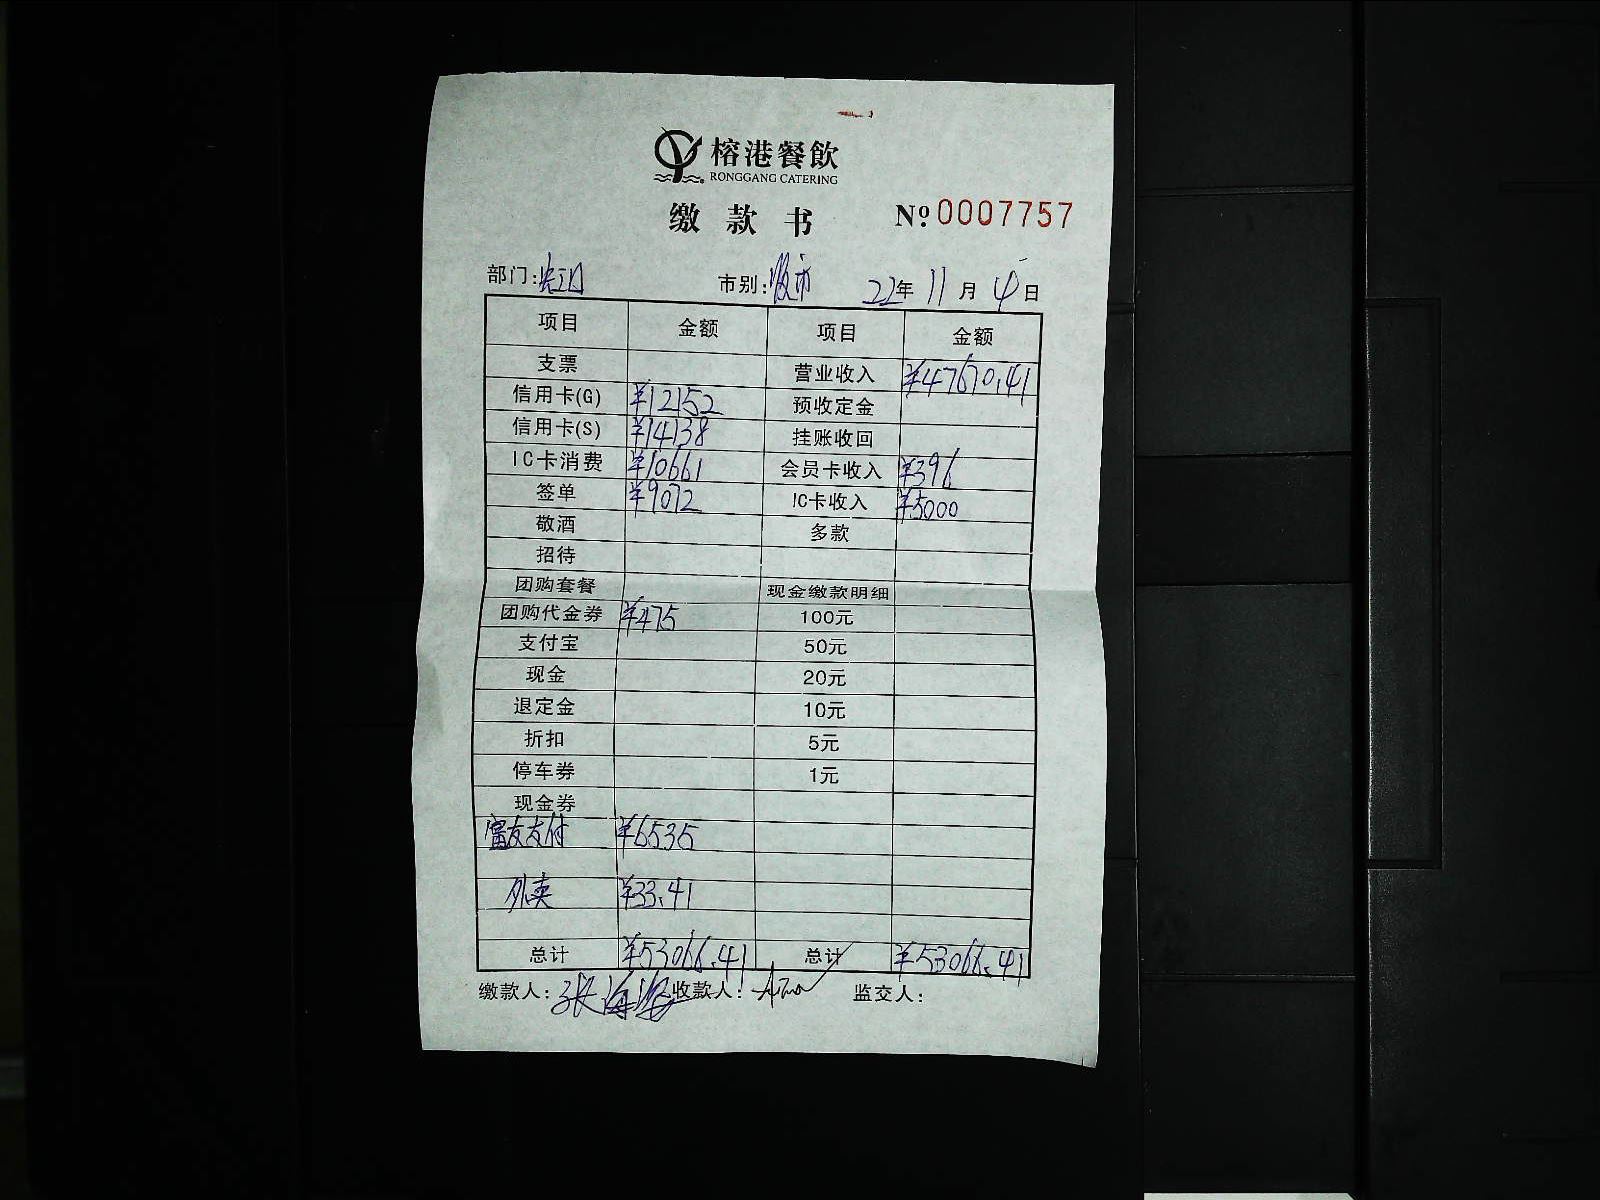 榕港餐飲
RONGGANG CATERING
缴款书 №0007757
部门: 市别:夜市 22年11月4日
项目 金额 项目 金额
支票 营业收入 ¥47670.41
信用卡(G) ¥12152 预收定金
信用卡(S) ¥14138 挂账收回
IC卡消费 ¥10661 会员卡收入 ¥396
签单 ¥9072 IC卡收入 ¥5000
敬酒 多款
招待
团购套餐 现金缴款明细
团购代金券 ¥475 100元
支付宝 50元
现金 20元
退定金 10元
折扣 5元
停车券 1元
现金券
富友支付 ¥6535
外卖 ¥33.41
总计 ¥53066.41 总计 ¥53066.41
缴款人:张海 收款人: 监交人: